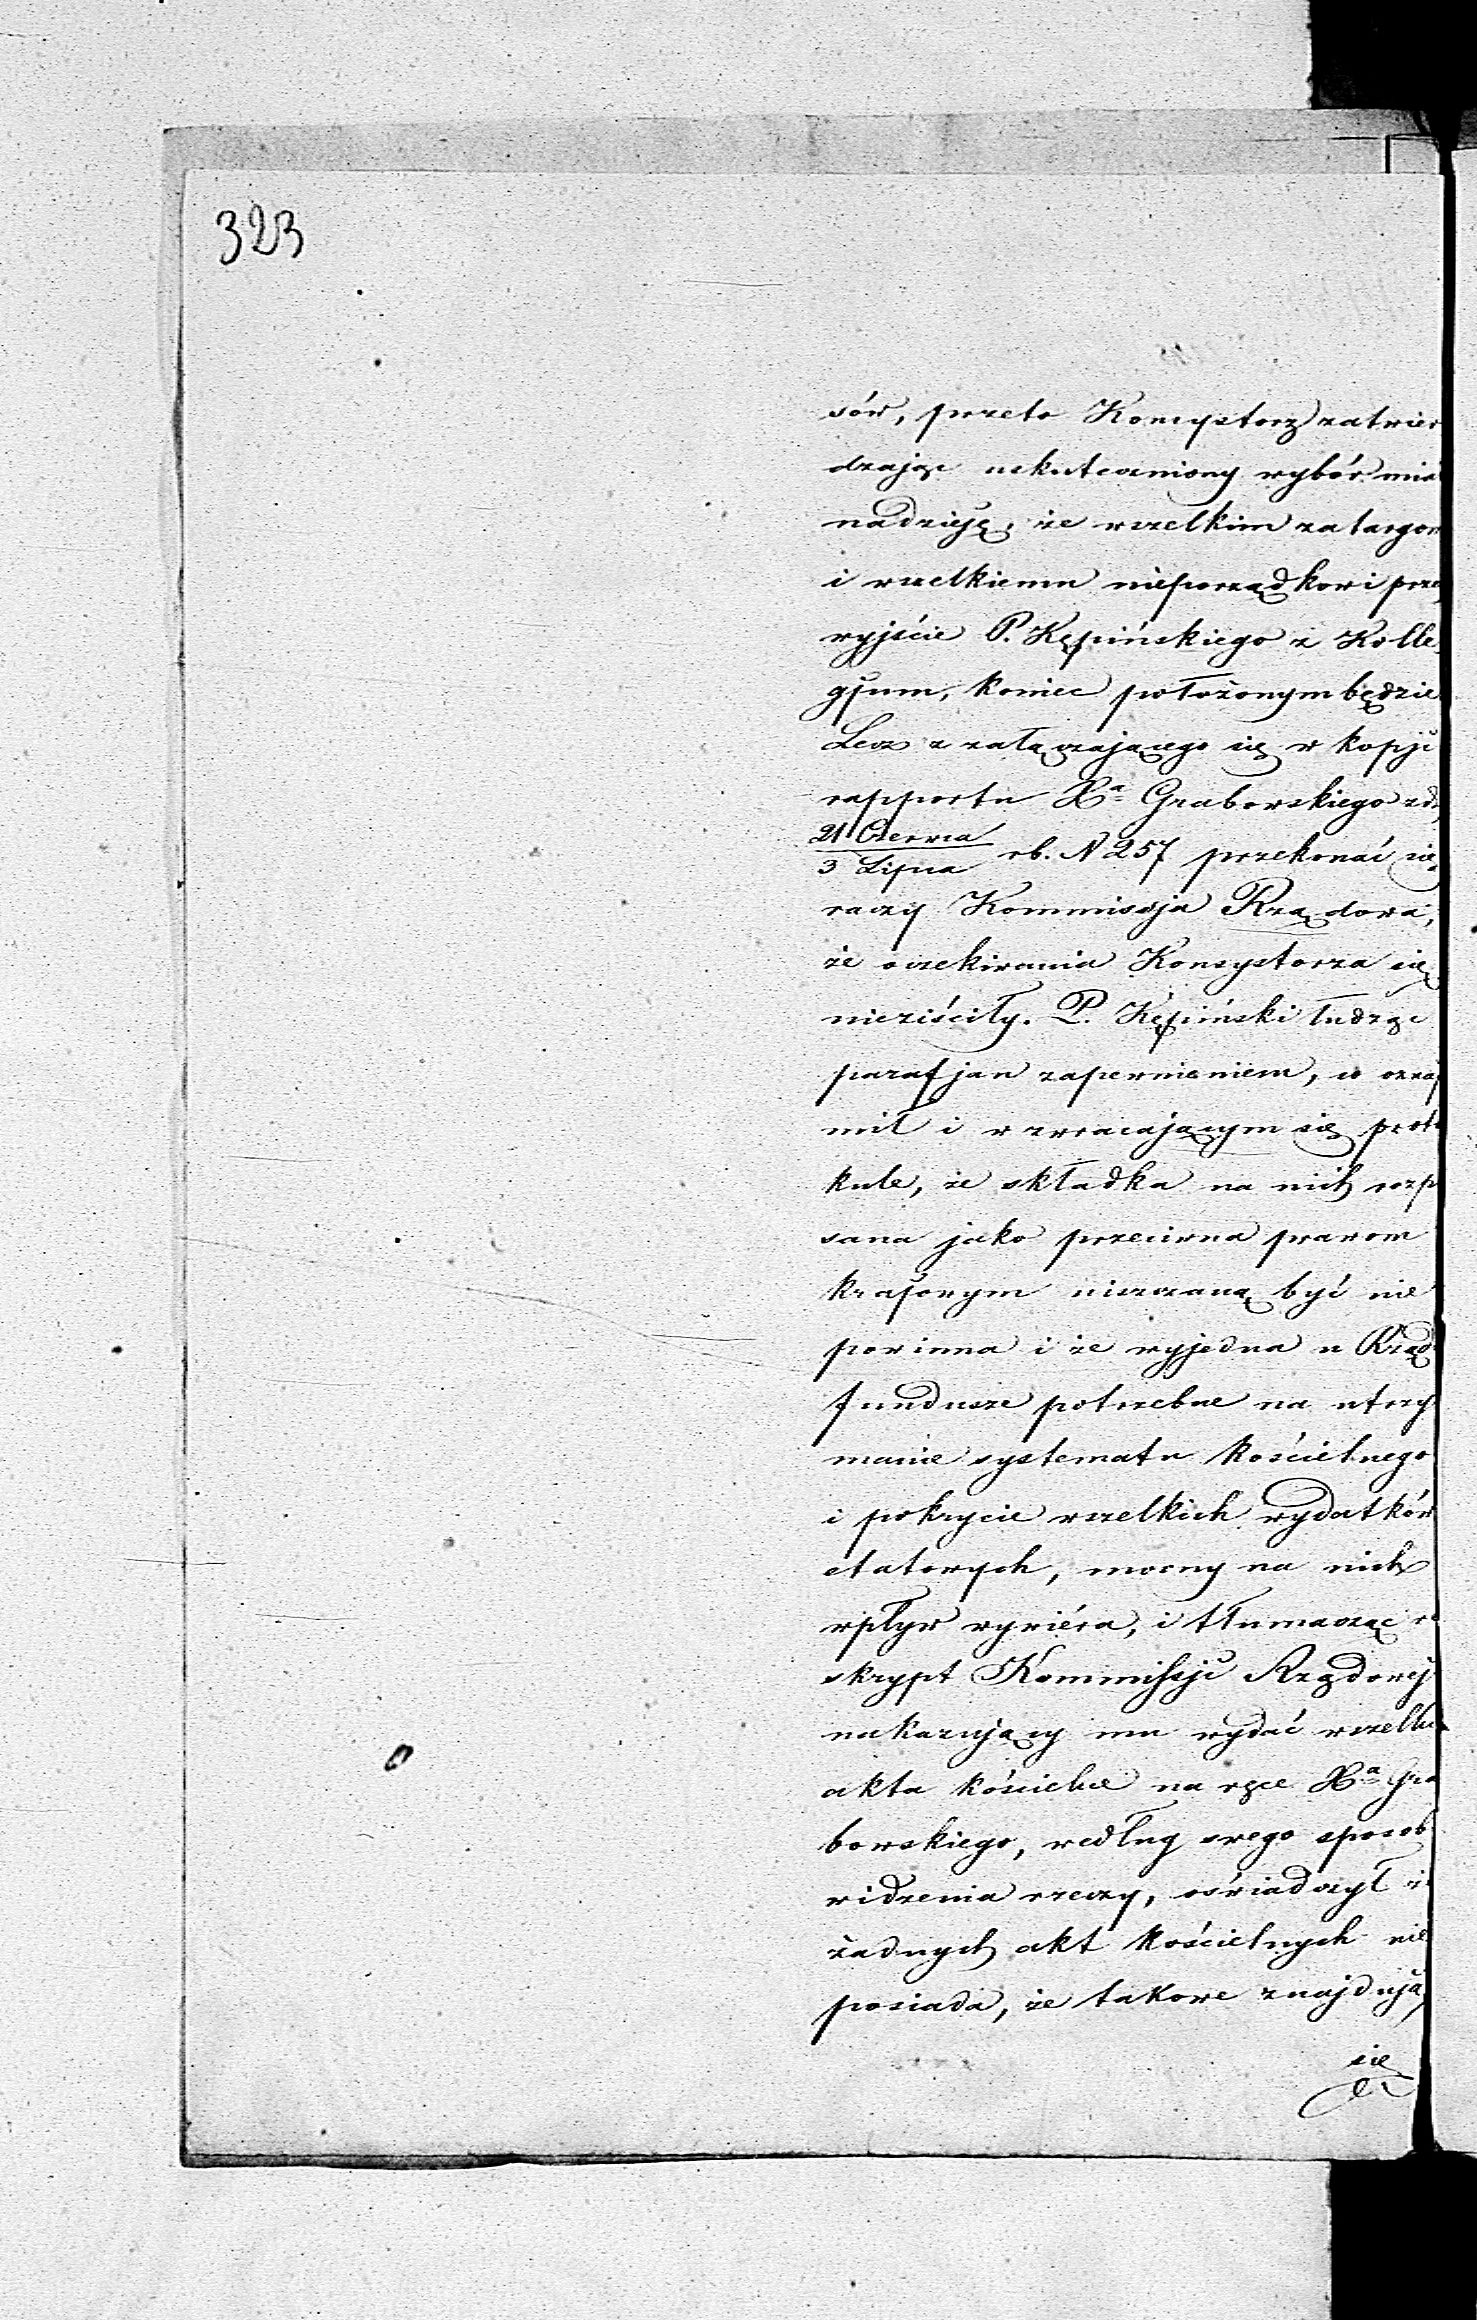 323
sów, przeto Konsystorz zatwier
dzając uskuteczniony wybór miał
nadzieję, że wszelkim zatargom
i wszelkiemu nieporządkowi przez
wyjście P. Kępińskiego z Kolle-
gjum, koniec położonym będzie
Lecz z załączającego się w kopji
rapportu Xa Grabowskiego z d.
21 Czerwca
3 Lipca rb. N 257 przekonać się
raczy Kommissja Rządowa,
że oczekiwania Konsystorza się
nieziściły. P. Kępiński łudząc
parafjan zapewnieniem, co oznaj
mił i w zwracającym się proto
kule, że składka na nich rozpi
sana jako przeciwna prawom
krajowym uiszczaną być nie
powinna i że wyjedna u Rządu
fundusze potrzebne na utrzy
manie systematu kościelnego
i pokrycie wszelkich wydatków
etatowych, mocny na nich
wpływ wywiéra, i tłumacząc re
skrypt Kommissji Rządowej
nakazujący mu wydać wszelkie
akta kościelne na ręce Xa Gra
bowskiego, według swego sposobu
widzenia rzeczy, oświadczył że
żadnych akt kościelnych nie
posiada, że takowe znajdują
się